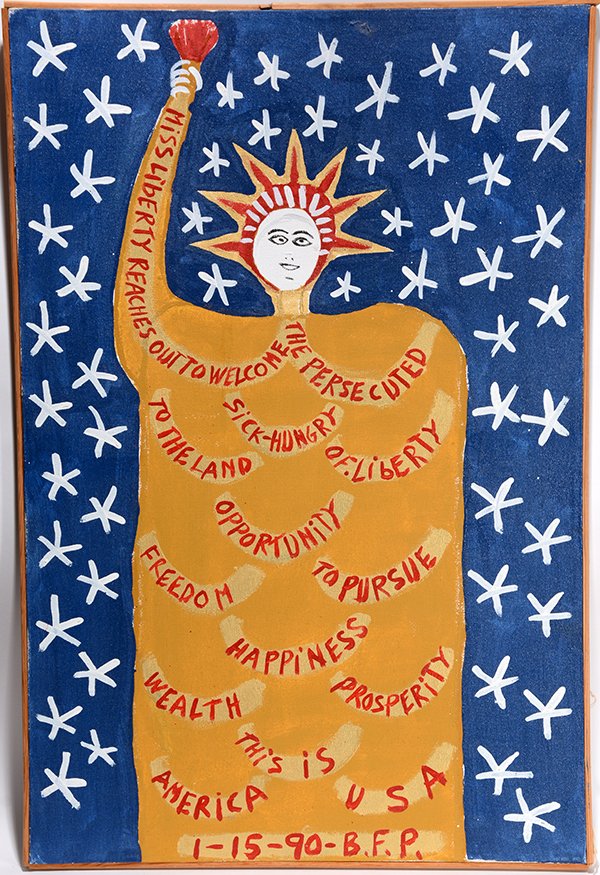 MISS LIBERTY REACHES OUT TO WELCOME
THE PERSECUTED
SICK-HUNGRY
TO THE LAND
OF LIBERTY
OPPORTUNITY
FREEDOM
TO PURSUE
HAPPINESS
WEALTH
PROSPERITY
THIS IS
AMERICA
USA
1-15-90-B.F.P.